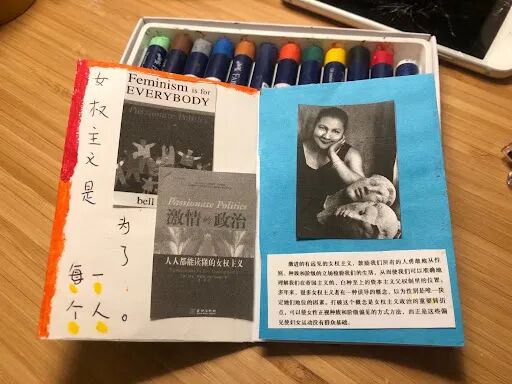 女权主义是
为了
每一
个人。
Feminism is for
EVERYBODY
Passionate Politics
bell
Passionate Politics
激情的政治
人人都能读懂的女权主义
激进的有远见的女权主义，鼓励我们所有的人勇敢地从性
别、种族和阶级的立场检验我们的生活，从而使我们可以准确地
理解我们在帝国主义的、白种至上的资本主义父权制里的位置。
多年来，很多女权主义者有一种误导的概念，以为性别是唯一决
定她们地位的因素。打破这个概念是女权主义政治的重要转折
点，可以使女性正视种族和阶级偏见的方式方法，而正是这些偏
见使妇女运动没有群众基础。